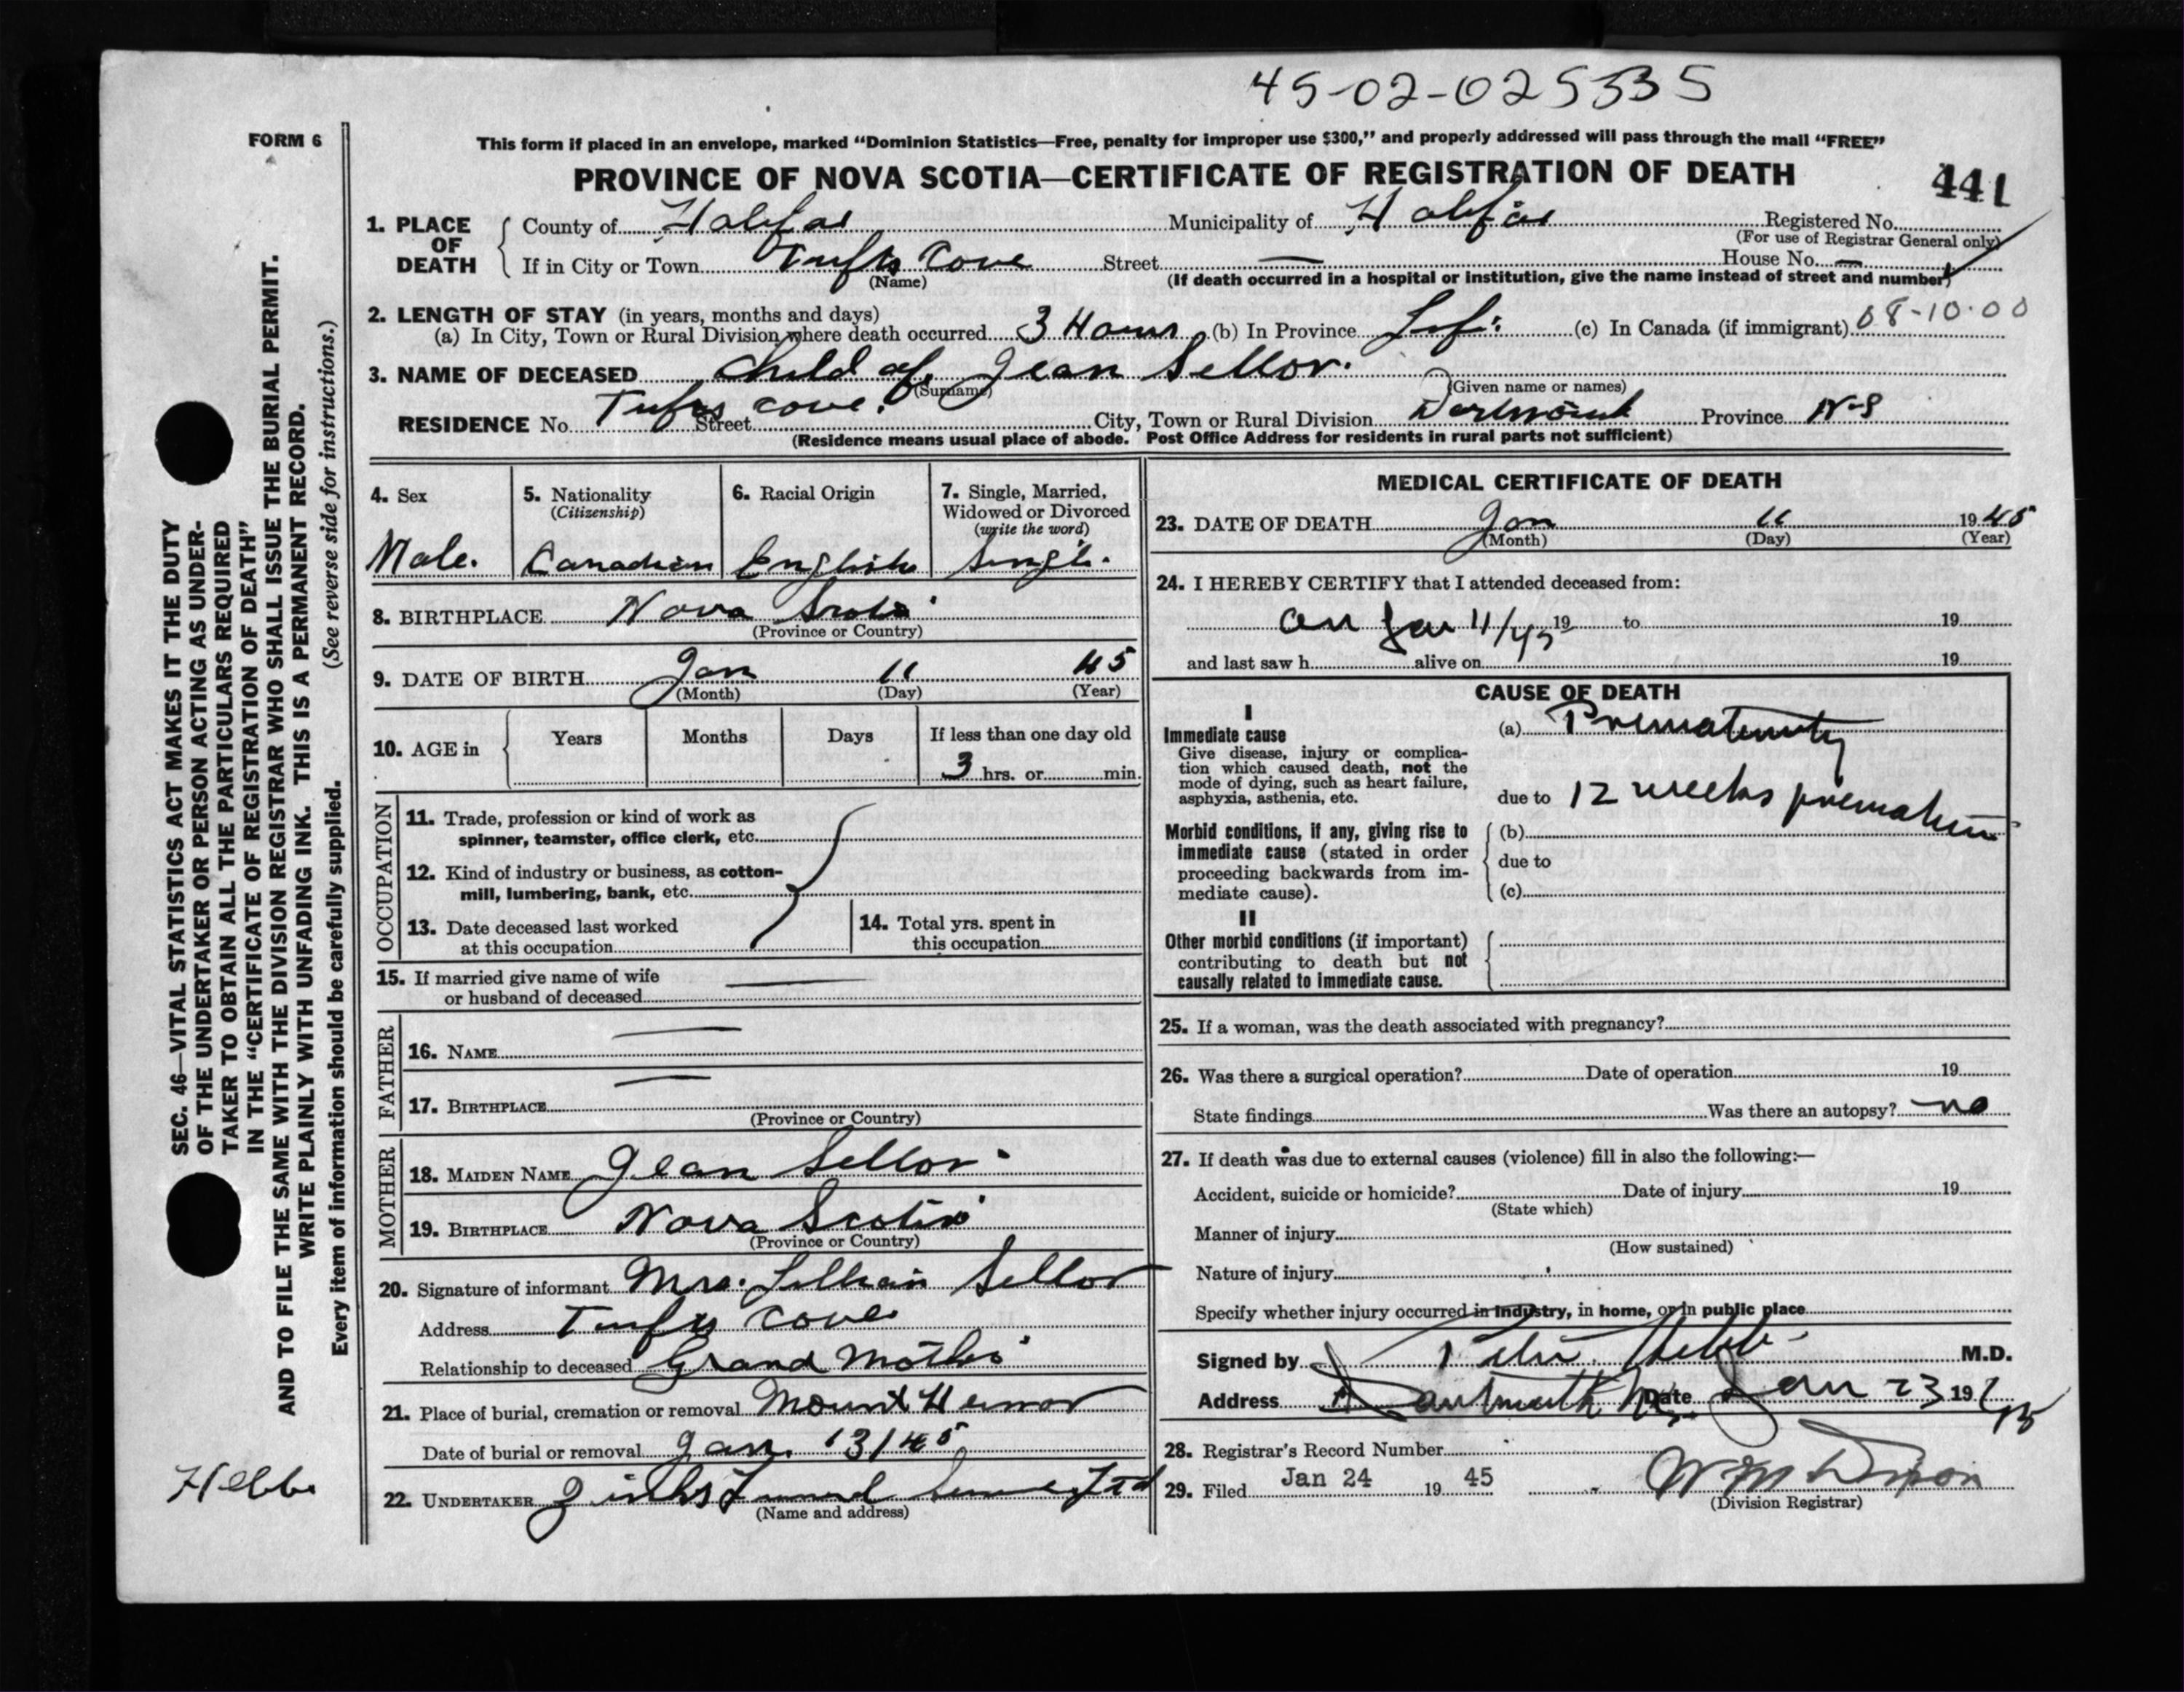 45-02-025335
FORM 6
This form if placed in an envelope, marked "Dominion Statistics—Free, penalty for improper use $300," and properly addressed will pass through the mail "FREE"
PROVINCE OF NOVA SCOTIA—CERTIFICATE OF REGISTRATION OF DEATH
441
1. PLACE OF DEATH
County of Halifax Municipality of Halifax Registered No.
(For use of Registrar General only)
If in City or Town Tufts Cove Street — House No. —
(Name) (If death occurred in a hospital or institution, give the name instead of street and number)
2. LENGTH OF STAY (in years, months and days)
(a) In City, Town or Rural Division where death occurred 3 Hours (b) In Province Life (c) In Canada (if immigrant) 08-10-00
3. NAME OF DECEASED Child of Jean Sellor.
(Surname) (Given name or names)
RESIDENCE No. Tufts Cove. Street City, Town or Rural Division Dartmouth Province N-S
(Residence means usual place of abode. Post Office Address for residents in rural parts not sufficient)
4. Sex
Male.
5. Nationality
(Citizenship)
Canadian
6. Racial Origin
English
7. Single, Married,
Widowed or Divorced
(write the word)
Single.
8. BIRTHPLACE Nova Scotia
(Province or Country)
9. DATE OF BIRTH Jan 11 45
(Month) (Day) (Year)
10. AGE in
Years Months Days If less than one day old
3 hrs. or min.
OCCUPATION
11. Trade, profession or kind of work as
spinner, teamster, office clerk, etc.
12. Kind of industry or business, as cotton-
mill, lumbering, bank, etc.
13. Date deceased last worked
at this occupation
14. Total yrs. spent in
this occupation
15. If married give name of wife
or husband of deceased —
FATHER
16. NAME —
17. BIRTHPLACE —
(Province or Country)
MOTHER
18. MAIDEN NAME Jean Sellor
19. BIRTHPLACE Nova Scotia
(Province or Country)
20. Signature of informant Mrs. Lillian Sellor
Address Tufts Cove
Relationship to deceased Grand Mother
21. Place of burial, cremation or removal Mount Hermon
Date of burial or removal Jan. 13/45
22. UNDERTAKER Zinks Funeral Service Ltd
(Name and address)
MEDICAL CERTIFICATE OF DEATH
23. DATE OF DEATH Jan 11 1945
(Month) (Day) (Year)
24. I HEREBY CERTIFY that I attended deceased from:
on Jan 11/45 19 to 19
and last saw h alive on 19
CAUSE OF DEATH
I
Immediate cause
Give disease, injury or complica-
tion which caused death, not the
mode of dying, such as heart failure,
asphyxia, asthenia, etc.
(a) Prematurity
due to 12 weeks premature
Morbid conditions, if any, giving rise to
immediate cause (stated in order
proceeding backwards from im-
mediate cause).
(b)
due to
(c)
II
Other morbid conditions (if important)
contributing to death but not
causally related to immediate cause.
25. If a woman, was the death associated with pregnancy?
26. Was there a surgical operation? Date of operation 19
State findings Was there an autopsy? no
27. If death was due to external causes (violence) fill in also the following:—
Accident, suicide or homicide? Date of injury 19
(State which)
Manner of injury
(How sustained)
Nature of injury
Specify whether injury occurred in industry, in home, or in public place
Signed by Hebb M.D.
Address Dartmouth N.S. Date Jan 23 1945
28. Registrar's Record Number
29. Filed Jan 24 19 45
(Division Registrar)
SEC. 46—VITAL STATISTICS ACT MAKES IT THE DUTY
OF THE UNDERTAKER OR PERSON ACTING AS UNDER-
TAKER TO OBTAIN ALL THE PARTICULARS REQUIRED
IN THE "CERTIFICATE OF REGISTRATION OF DEATH"
AND TO FILE THE SAME WITH THE DIVISION REGISTRAR WHO SHALL ISSUE THE BURIAL PERMIT.
WRITE PLAINLY WITH UNFADING INK. THIS IS A PERMANENT RECORD.
(See reverse side for instructions.)
Every item of information should be carefully supplied.
Hebb